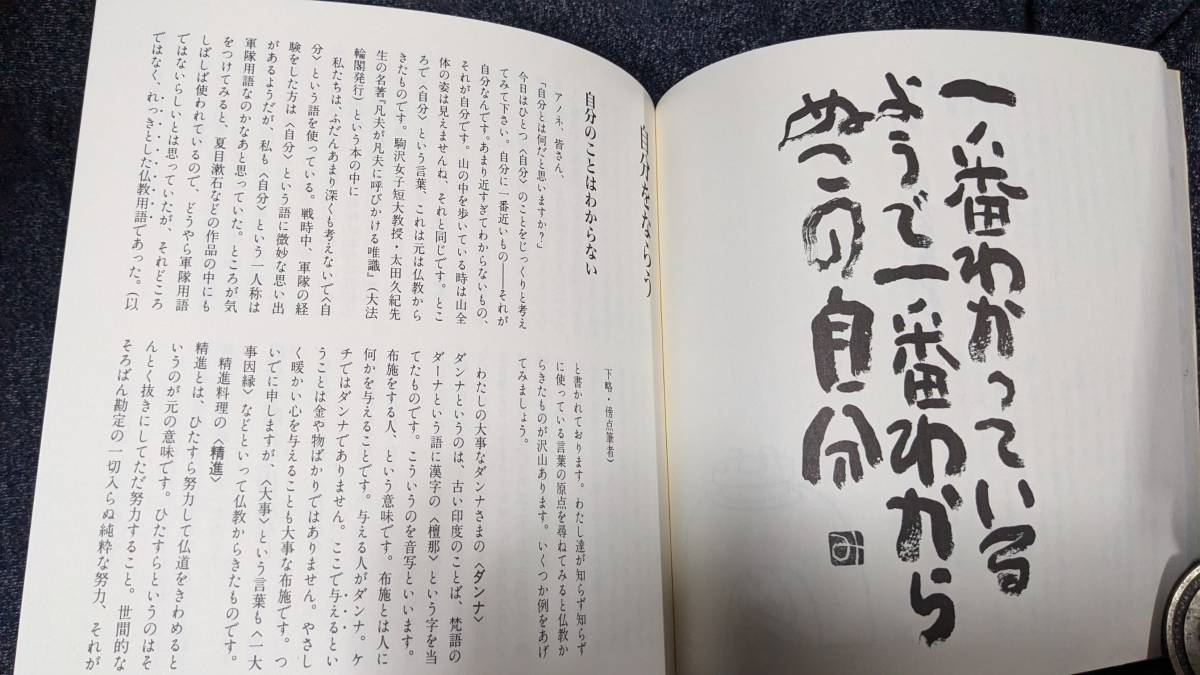 一番わかっている
ようで一番わから
ぬこの自分
み
自分をならう
自分のことはわからない
アノネ、皆さん、
「自分とは何だと思いますか?」
今日はひとつ〈自分〉のことをじっくりと考え
てみて下さい。自分に一番近いもの――それが
自分なんです。あまり近すぎてわからないもの、
それが自分です。山の中を歩いている時は山全
体の姿は見えませんね、それと同じです。とこ
ろで〈自分〉という言葉、これは元は仏教から
きたものです。駒沢女子短大教授・太田久紀先
生の名著『凡夫が凡夫に呼びかける唯識』(大法
輪閣発行)という本の中に
私たちは、ふだんあまり深くも考えないで〈自
分〉という語を使っている。戦時中、軍隊の経
験をした方は〈自分〉という語に微妙な思い出
があるようだが、私も〈自分〉という一人称は
軍隊用語なのかなあと思っていた。ところが気
をつけてみると、夏目漱石などの作品の中にも
しばしば使われているので、どうやら軍隊用語
ではないらしいとは思っていたが、それどころ
ではなく、れっきとした仏教用語であった。(以
下略・傍点筆者)
と書かれております。わたし達が知らず知らず
に使っている言葉の原点を尋ねてみると仏教か
らきたものが沢山あります。いくつか例をあげ
てみましょう。
わたしの大事なダンナさまの〈ダンナ〉
ダンナというのは、古い印度のことば、梵語の
ダーナという語に漢字の〈檀那〉という字を当
てたものです。こういうのを音写といいます。
布施をする人、という意味です。布施とは人に
何かを与えることです。与える人がダンナ。ケ
チではダンナでありません。ここで与えるとい
うことは金や物ばかりではありません。やさし
く暖かい心を与えることも大事な布施です。つ
いでに申しますが、〈大事〉という言葉も〈一大
事因縁〉などといって仏教からきたものです。
精進料理の〈精進〉
精進とは、ひたすら努力して仏道をきわめると
いうのが元の意味です。ひたすらというのはそ
んとく抜きにしてただ努力すること。世間的な
そろばん勘定の一切入らぬ純粋な努力、それが